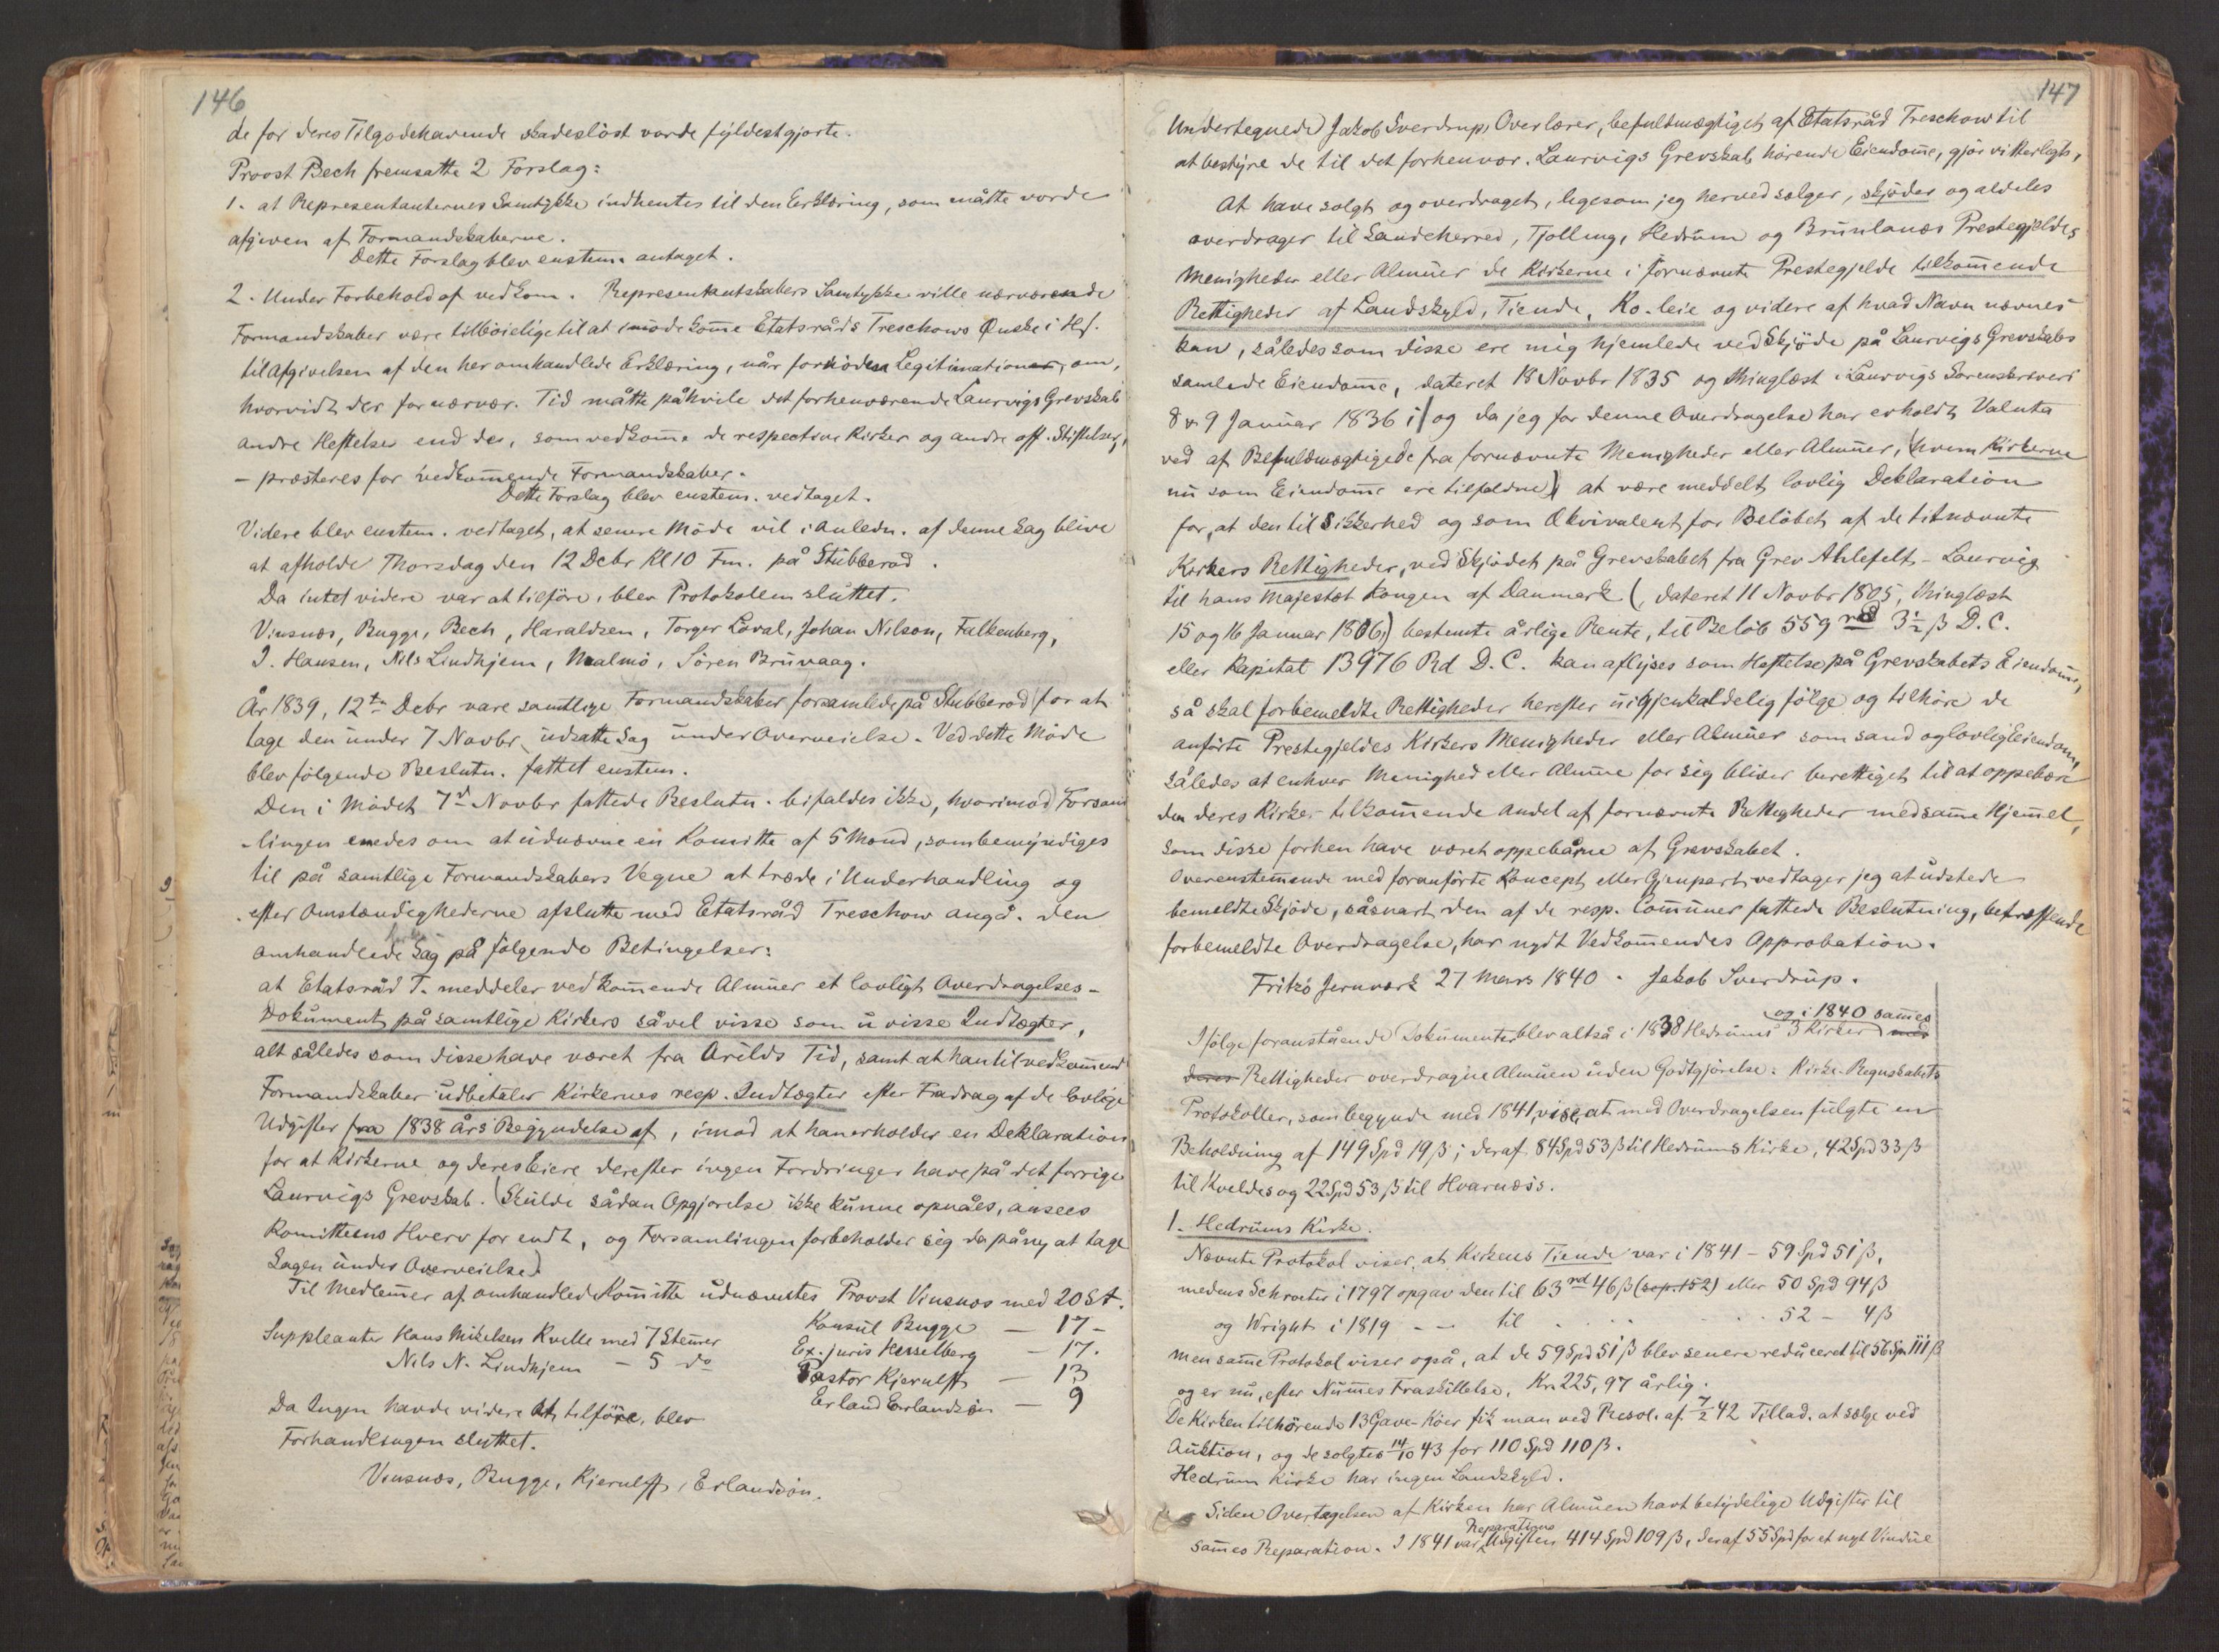 146
de for deres Tilgodehavende skadesløst vorde fyldestgjorte.
Provst Bech fremsatte 2 Forslag:
1. at Representanternes Samtykke indhentes til den Erklæring, som måtte vorde
afgiven af Formandskaberne.
Dette Forslag blev enstem. antaget.
2. Under Forbehold af vedkom. Representantskabers Samtykke ville nærværende
Formandskaber være tilbøielige til at imødekom̅e Etatsråd Treschows Ønske i Hs.
til Afgivelsen af den her omhandlede Erklæring, når fornøden Legitimation, om,
hvorvidt der for nærvær. Tid måtte påhvile det forhenværende Laurvigs Grevskab
andre Heftelser end de, som vedkom̅e de respective Kirker og andre off. Stiftelser,
- præsteres for vedkom̅ende Formandskaber.
Dette Forslag blev enstem. vedtaget.
Videre blev enstem. vedtaget, at senere Møde vil i Anledn. af denne Sag blive
at afholde Thorsdag den 12 Debr Kl 10 Fm. på Stubberød.
Da intet videre var at tilføre, blev Protokollen sluttet.
Vinsnæs, Bugge, Bech, Haraldsen, Torger Løval, Johan Nilson, Falkenberg,
I. Hansen, Nils Lindhjem, Malmø, Sören Bruvaag.
År 1839, 12te Debr vare samtlige Formandskaber forsamlede på Stubberød for at
tage den under 7 Novbr udsatte Sag under Overveielse. Ved dette Møde
blev følgende Beslutn. fattet enstem.
Den i Mødet 7d Novbr fattede Beslutn. bifaldes ikke, hvorimod Forsam
-lingen enedes om at udnævne en Komitte af 5 Mænd, som bemyndiges
til på samtlige Formandskabers Vegne at træde i Underhandling og
efter Omstændighederne afslutte med Etatsråd Treschow angå. den
omhandlede Sag på følgende Betingelser:
at Etatsråd T. meddeler vedkom̅ende Almuer et lovligt Overdragelses-
Dokument på samtlige Kirkers såvel visse som uvisse Indtægter,
alt således som disse have været fra Arilds Tid, samt at han til vedkom̅end
Formandskaber udbetaler Kirkernes resp. Indtægter efter Fradrag af de lovlige
Udgifter fra 1838 års Begyndelse af, imod at han erholder en Deklaration
for at Kirkerne og deres Eiere derefter ingen Fordringer have på det forrige
Laurvigs Grevskab. (Skulde sådan Opgjørelse ikke kunne opnåes, ansees
Komitteens Hverv for endt, og Forsamlingen forbeholder sig da påny at tage
Sagen under Overveielse.)
Til Medlem̅er af omhandlede Kom̅itte udnævntes Provst Vinsnæs med 20 St.
Konsul Bugge — 17 -
Suppleanter Hans Mikelsen Kvelle med 7 Stem̅er
Ex. juris Hesselberg — 17.
Nils N. Lindhjem — 5 do
Pastor Kjerulff — 13
Erland Erlandsøn — 9
Da Ingen havde videre at tilføre, blev
Forhandlingen sluttet.
Vinsnæs, Bugge, Kjerulff, Erlandsøn.
147
Undertegnede Jakob Sverdrup, Overlærer, befuldmægtiget af Etatsråd Treschow til
at bestyre de til det forhenvær. Laurvigs Grevskab hørende Eiendom̅e, gjør vitterligt,
At have solgt og overdraget, ligesom jeg herved sælger, skjøder og aldeles
overdrager til Sandeherred, Tjølling, Hedrum og Brunlanæs Prestegjeldes
Menigheder eller Almuer de Kirkerne i fornævnte Prestegjelde tilkom̅ende
Rettigheder af Landskyld, Tiende, Ko-leie og videre af hvad Navn nævnes
kan, således som disse ere mig hjemlede ved Skjøde på Laurvigs Grevskabs
samlede Eiendom̅e, dateret 18 Novbr 1835 og thinglæst i Laurvigs Sorenskriveri
8 & 9 Januar 1836 i og da jeg for denne Overdragelse har erholdt Valuta
ved af Befuldmægtigede fra fornævnte Menigheder eller Almuer, (hvem Kirkerne
nu som Eiendom̅e ere tilfaldne) at være meddelt lovlig Deklaration
for, at den til Sikkerhed og som Ækvivalent for Beløbet af de titnævnte
Kirkers Rettigheder, ved Skjødet på Grevskabet fra Grev Ahlefelt-Laurvig
til hans Majestæt Kongen af Danmark (, dateret 11 Novbr 1805, thinglæst
15 og 16 Januar 1806,) bestemte årlige Rente, til Beløb 559 rd 3½ ß D. C.
eller Kapital 13976 Rd D. C. kan aflyses som Heftelse på Grevskabets Eiendom̅e,
så skal forbemeldte Rettigheder herefter uigjenkaldelig følge og tilhøre de
anførte Prestegjeldes Kirkers Menigheder eller Almuer som sand og lovlig Eiendom,
således at enhver Menighed eller Almue for sig bliver berettiget til at oppebære
den deres Kirker tilkom̅ende Andel af fornævnte Rettigheder med sam̅e Hjem̅el,
som disse forhen have været oppebårne af Grevskabet.
Overenstem̅ende med foranførte Koncept eller Gjenpart vedtager jeg at udstede
bemeldte Skjøde, såsnart den af de resp. Com̅uner fattede Beslutning, betreffende
forbemeldte Overdragelse, har nydt Vedkom̅endes Approbation.
Fritzø Jernværk 27 Mars 1840. Jakob Sverdrup.
og i 1840 sam̅es
Ifølge foranstående Dokumenter blev altså i 1838 Hedrums 3 Kirker med
deres Rettigheder overdragne Almuen uden Godtgjørelse. Kirke-Regnskabets
Protokoller, som begynde med 1841, vise, at med Overdragelsen fulgte en
Beholdning af 149 Spd 19 ß; deraf 84 Spd 53 ß til Hedrums Kirke, 42 Spd 33 ß
til Kveldes og 22 Spd 53 ß til Hvarnæs's.
1. Hedrums Kirke.
Nævnte Protokol viser, at Kirkens Tiende var i 1841 - 59 Spd 51 ß,
medens Schrøter i 1797 opgav den til 63 rd 46 ß (sep. 152) eller 50 Spd 94 ß
og Wright i 1819 - - til . . . . . . 52 - 4 ß
men sam̅e Protokol viser også, at de 59 Spd 51 ß blev senere reduceret til 56 Spd 111 ß
og er nu, efter Num̅es Fraskillelse, Kr. 225,97 årlig.
De Kirken tilhørende 13 Gave-Køer fik man ved Resol. af 7/2 42 Tillad. at sælge ved
Auktion, og de solgtes 14/10 43 for 110 Spd 110 ß.
Hedrum Kirke har ingen Landskyld.
Siden Overtagelsen af Kirken har Almuen havt betydelige Udgifter til
Reparations
sam̅es Reparation. I 1841 var Udgiften 414 Spd 109 ß, deraf 55 Spd for et nyt Vindue